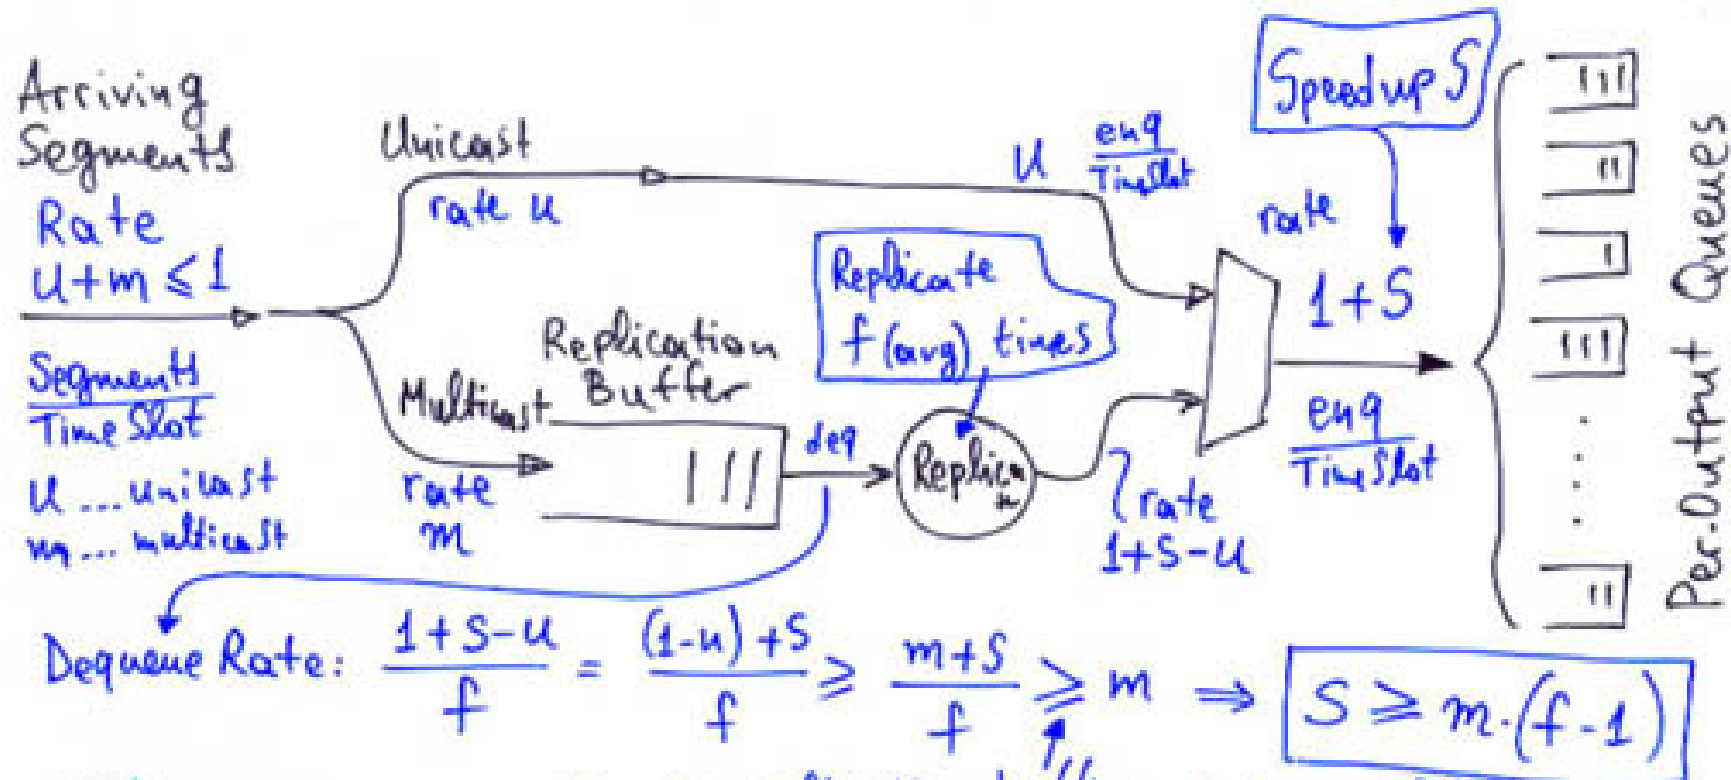 Arriving
Segments
Rate
u+m ≤ 1
Segments
Time Slot
u ... unicast
m ... multicast
Unicast
rate u
Multicast
rate
m
Replication
Buffer
deq
Replicate
f (avg) times
Replica
u
enq
TimeSlot
rate
1+S-u
Speedup S
rate
1+S
enq
TimeSlot
Per-Output Queues
Dequeue Rate: (1+S-u)/f = ((1-u)+S)/f ≥ (m+S)/f ≥ m ⇒ S ≥ m·(f-1)